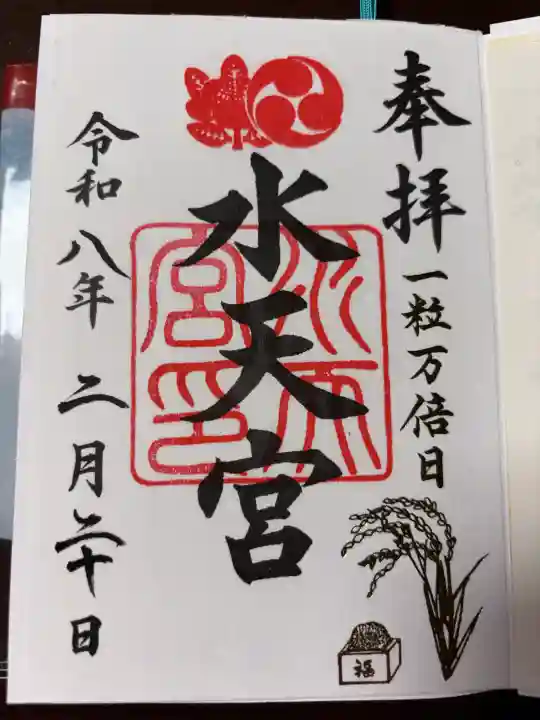 奉拝
一粒万倍日
水天宮
水天宮印
福
令和八年二月二十日